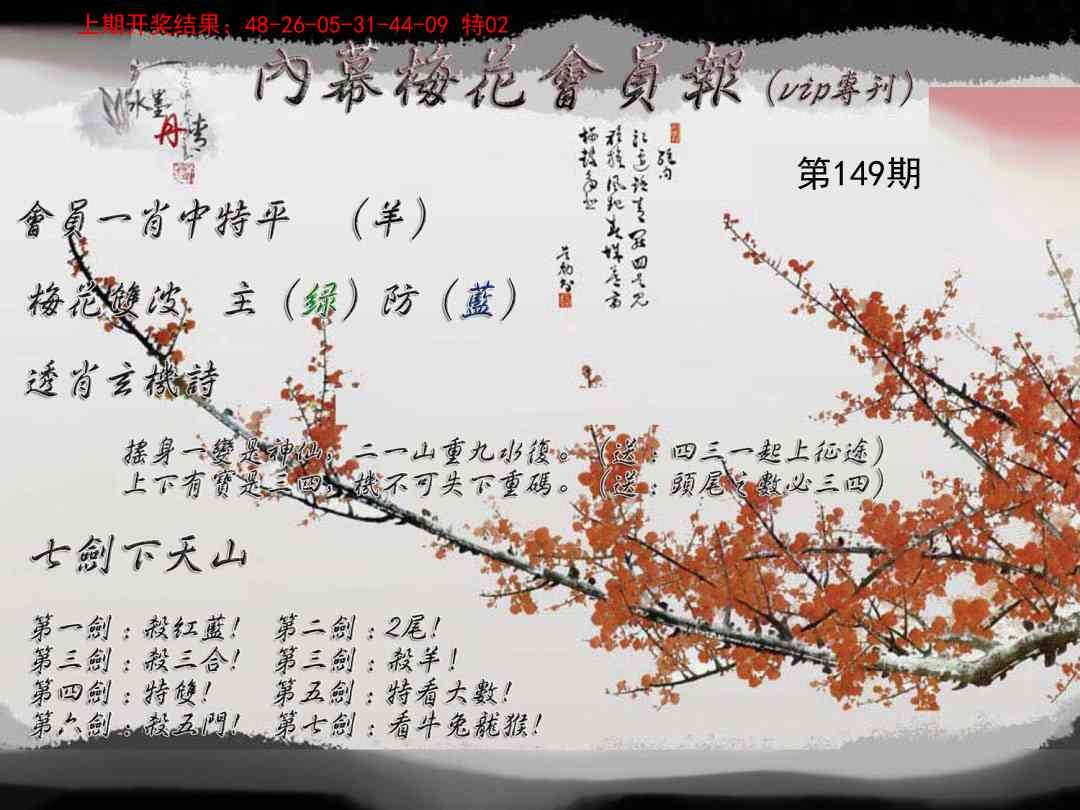 上期开奖结果：48-26-05-31-44-09 特02
內幕梅花會員報（vip專刊）
水墨
丹青
第149期
會員一肖中特平 （羊）
梅花雙波 主（绿）防（藍）
透肖玄機詩
搖身一變是神仙，二一山重九水復。（送：四三一起上征途）
上下有寶是三四，機不可失下重碼。（送：頭尾之數必三四）
七劍下天山
第一劍：殺紅藍！ 第二劍：2尾！
第三劍：殺三合！ 第三劍：殺羊！
第四劍：特雙！ 第五劍：特看大數！
第六劍：殺五門！ 第七劍：看牛兔龍猴！